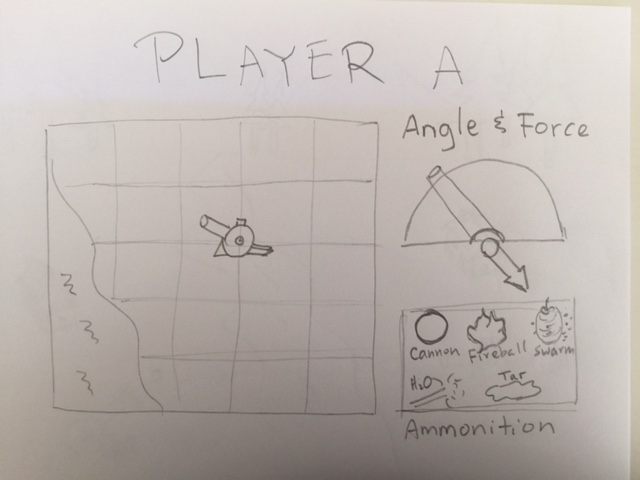 PLAYER A
Angle & Force
Cannon Fireball Swarm
H₂O Tar
Ammonition